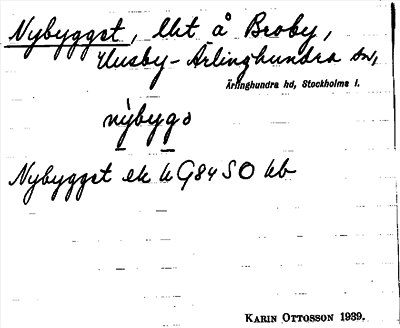 Nybygget, lht å Broby,
Husby-Ärlinghundra sn,
Ärlinghundra hd, Stockholms l.
nybygə
Nybygget ek kG84SO kb
KARIN OTTOSSON 1939.